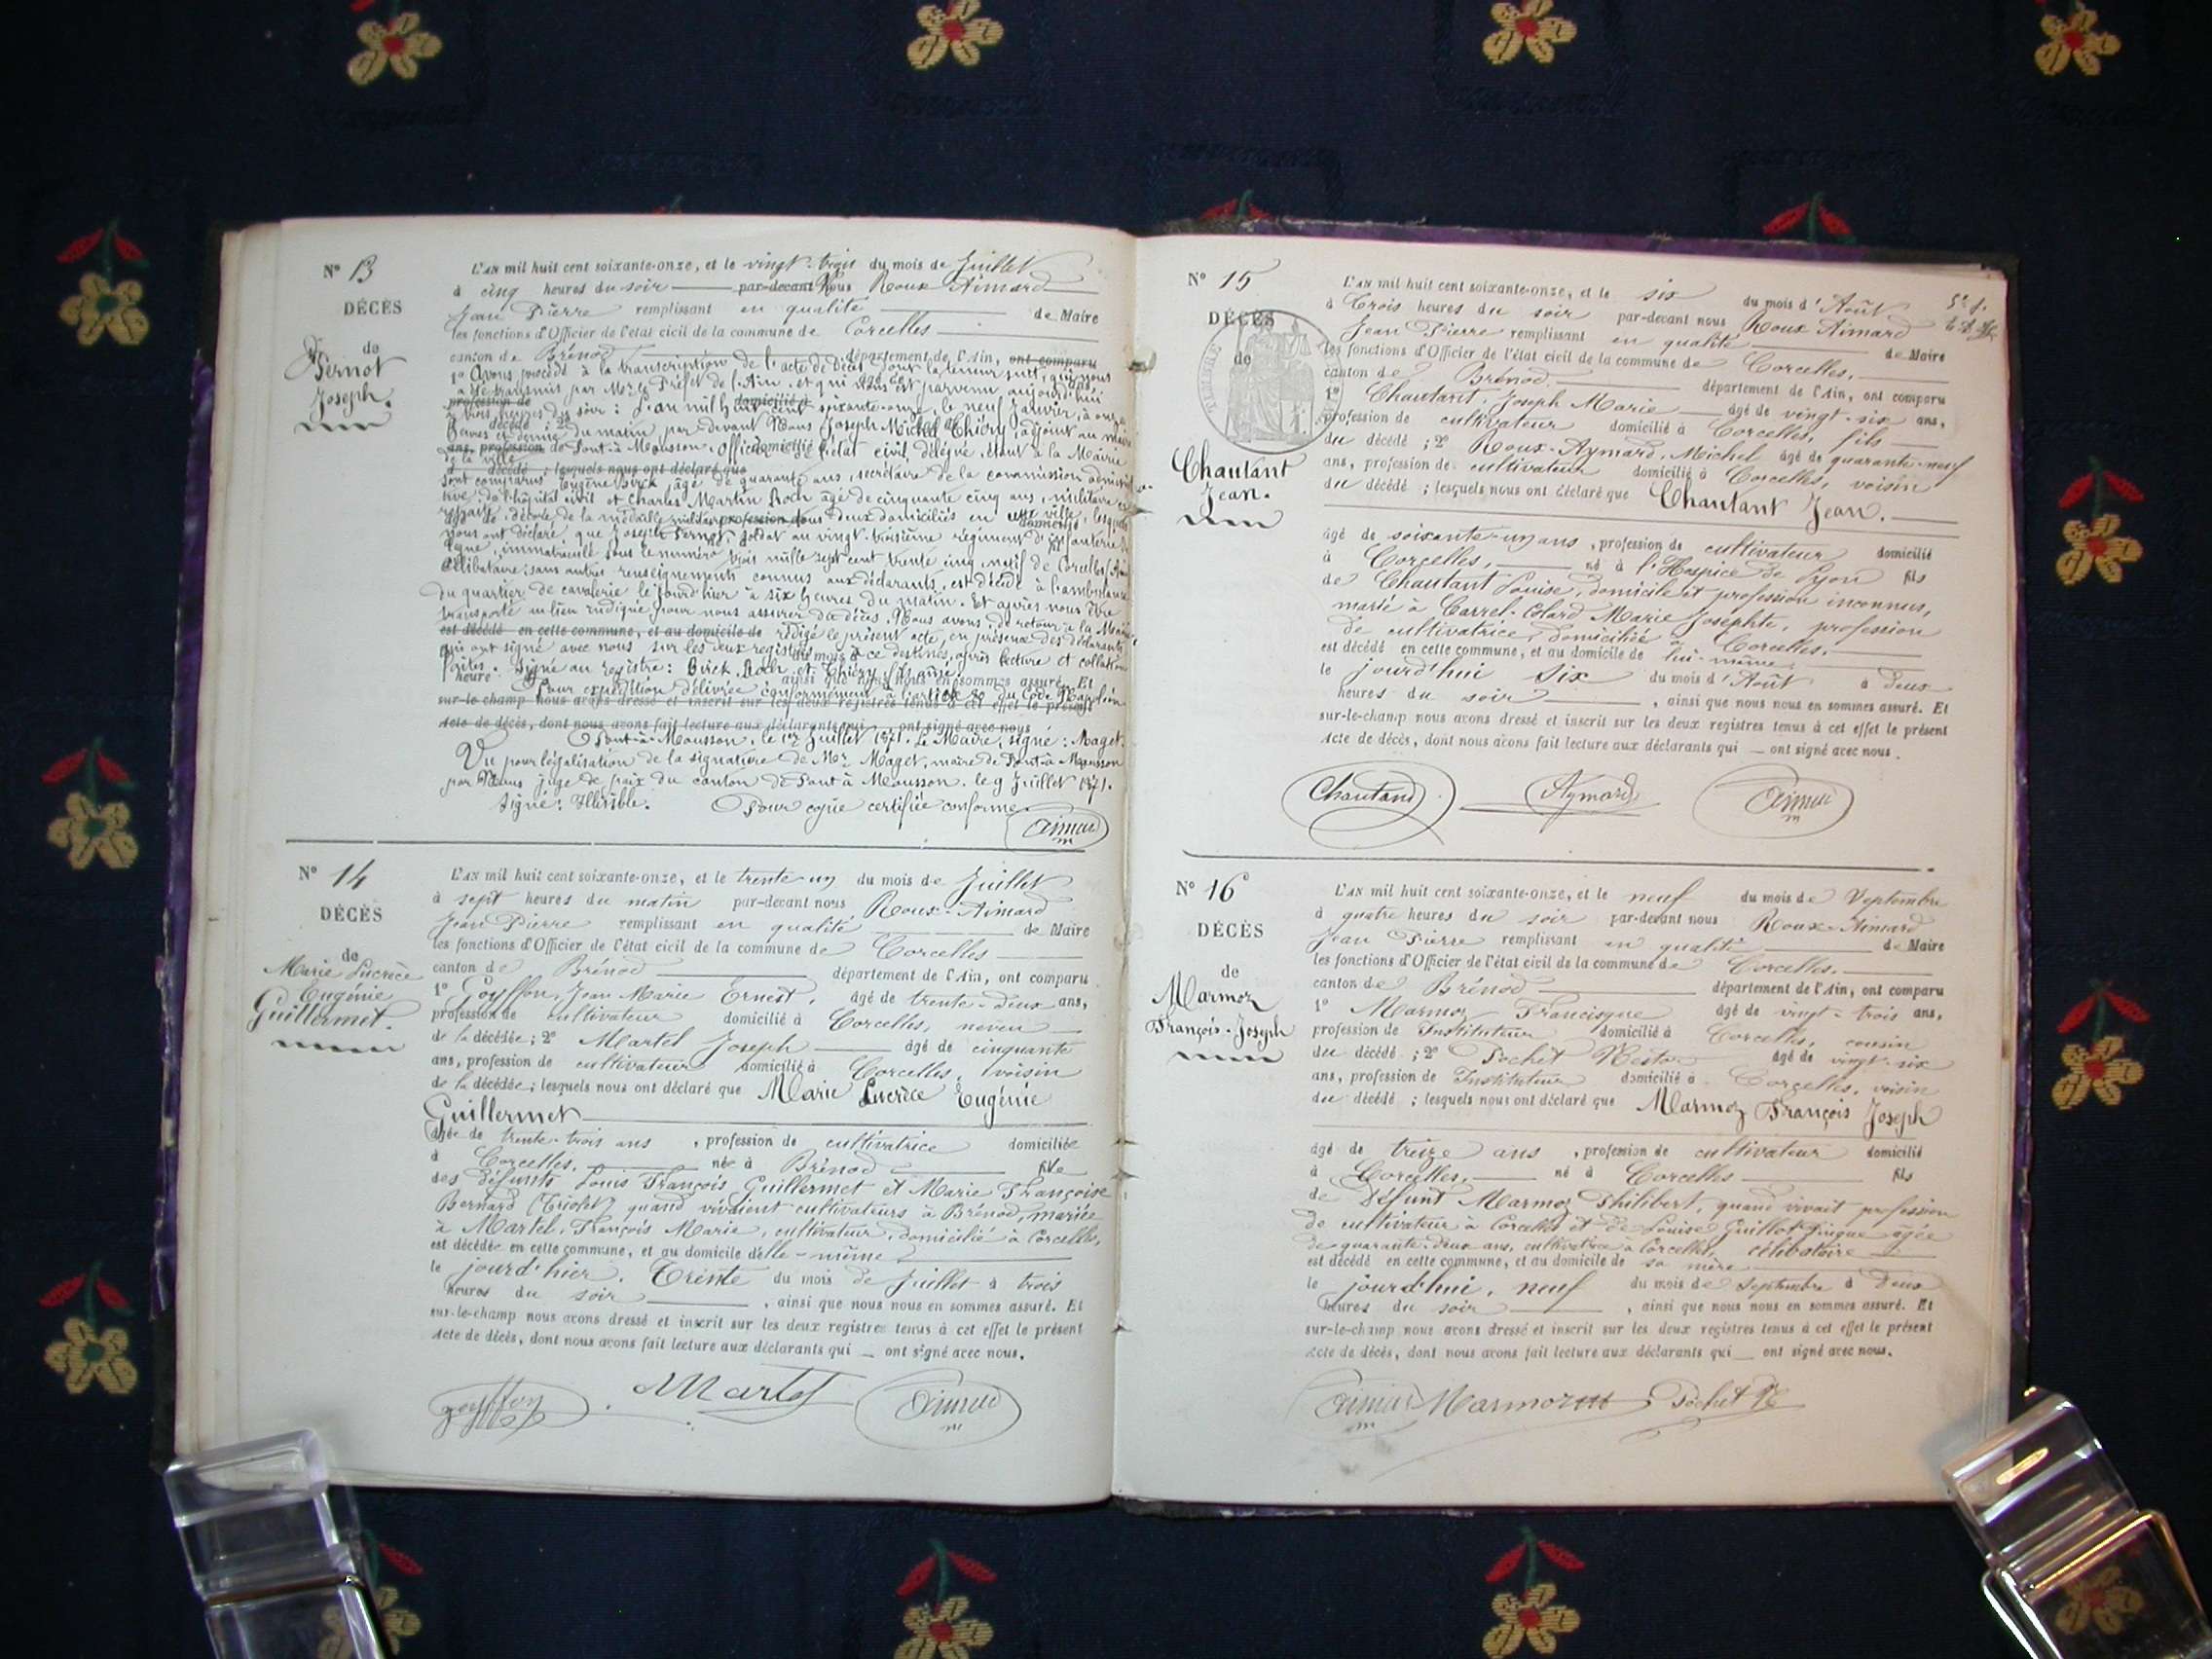 N° 13
DÉCÈS
de
Pernot
Joseph.
L'AN mil huit cent soixante-onze, et le vingt-trois du mois de Juillet
à cinq heures du soir par-devant Nous Roux Aimard
Jean Pierre remplissant en qualité de Maire
les fonctions d'Officier de l'état civil de la commune de Corcelles
canton de Brénod département de l'Ain, ont comparu
1° Avons procédé à la transcription de l'acte de décès dont la teneur suit, qui nous
a été transmis par Mr le Préfet de l'Ain, et qui nous est parvenu aujourd'hui
profession de domicilié à
à trois heures du soir : L'an mil huit cent soixante-onze, le neuf Janvier, à onze
décédé ; 2°
heures et demie du matin, par devant Nous Joseph Michel Thiéry, adjoint au maire
ans, profession de Pont-à-Mousson, Officier de l'état civil, délégué, étant à la Mairie
de la ville
d décédé ; lesquels nous ont déclaré que
sont comparus Eugène Birck, âgé de quarante ans, secrétaire de la commission administra-
tive de l'hôpital civil et Charles Martin Roch âgé de cinquante cinq ans, militaire en
retraite, décoré de la médaille militaire, tous deux domiciliés en cette ville, lesquels
nous ont déclaré, que Joseph Pernot, soldat au vingt-troisième régiment d'infanterie de
ligne, immatriculé sous le numéro trois mille sept cent trente cinq, natif de Corcelles (Ain)
célibataire, sans autres renseignements connus aux déclarants, est décédé à l'ambulance
du quartier de cavalerie le jourd'hier à six heures du matin. Et après nous être
transporté au lieu indiqué pour nous assurer du décès, Nous avons, de retour à la Mairie
est décédé en cette commune, et au domicile de rédigé le présent acte, en présence des déclarants
qui ont signé avec nous sur les deux registres à ce destinés, après lecture et collation
faites. Signé au registre : Birck, Roch et Thiéry,
ainsi que nous nous en sommes assuré. Et
Pour expédition délivrée conformément à l'article 80 du Code Napoléon
sur-le-champ nous avons dressé et inscrit sur les deux registres tenus à cet effet le présent
Acte de décès, dont nous avons fait lecture aux déclarants qui ont signé avec nous
Pont-à-Mousson, le 1er Juillet 1871. Le Maire, signé : Maget.
Vu pour légalisation de la signature de Mr Maget, maire de Pont-à-Mousson
par Nous juge de paix du canton de Pont à Mousson. le 9 Juillet 1871.
Signé : Illisible. Pour copie certifiée conforme
Aimard
m
N° 14
DÉCÈS
de
Marie Lucrèce
Eugénie
Guillermet.
L'AN mil huit cent soixante-onze, et le trente-un du mois de Juillet
à sept heures du matin par-devant nous Roux-Aimard
Jean Pierre remplissant en qualité de Maire
les fonctions d'Officier de l'état civil de la commune de Corcelles
canton de Brénod département de l'Ain, ont comparu
1° Goyffon, Jean Marie Ernest, âgé de trente-deux ans,
profession de cultivateur domicilié à Corcelles, neveu
de la décédée ; 2° Martel Joseph âgé de cinquante
ans, profession de cultivateur domicilié à Corcelles, voisin
de la décédée ; lesquels nous ont déclaré que Marie Lucrèce Eugénie
Guillermet
âgée de trente-trois ans , profession de cultivatrice domiciliée
à Corcelles, née à Brénod fille
des défunts Louis François Guillermet et Marie Françoise
Bernard (Triolet) quand vivaient cultivateurs à Brénod, mariée
à Martel, François Marie, cultivateur, domicilié à Corcelles,
est décédée en cette commune, et au domicile d'elle-même
le jourd'hier, Trente du mois de Juillet à trois
heures du soir , ainsi que nous nous en sommes assuré. Et
sur-le-champ nous avons dressé et inscrit sur les deux registres tenus à cet effet le présent
Acte de décès, dont nous avons fait lecture aux déclarants qui — ont signé avec nous.
goyffon Martel Aimard
m
N° 15
DÉCÈS
de
TIMBRE
Chautant
Jean.
L'AN mil huit cent soixante-onze, et le six du mois d'Août
à Trois heures du soir par-devant nous Roux Aimard
Jean Pierre remplissant en qualité de Maire
les fonctions d'Officier de l'état civil de la commune de Corcelles,
canton de Brénod. département de l'Ain, ont comparu
1° Chautant, Joseph Marie âgé de vingt-six ans,
profession de cultivateur domicilié à Corcelles, fils
du décédé ; 2° Roux-Aymard, Michel âgé de quarante-neuf
ans, profession de cultivateur domicilié à Corcelles, voisin
du décédé ; lesquels nous ont déclaré que Chautant Jean.
âgé de soixante-un ans , profession de cultivateur domicilié
à Corcelles, né à l'Hospice de Lyon fils
de Chautant Louise, domicile et profession inconnus,
marié à Carrel-Colard Marie Josephte, profession
de cultivatrice, domiciliée à Corcelles.
est décédé en cette commune, et au domicile de lui-même,
le jourd'hui six du mois d'Août à deux
heures du soir , ainsi que nous nous en sommes assuré. Et
sur-le-champ nous avons dressé et inscrit sur les deux registres tenus à cet effet le présent
Acte de décès, dont nous avons fait lecture aux déclarants qui — ont signé avec nous.
Chautand Aymard Aimard
m
N° 16
DÉCÈS
de
Marmoz
François-Joseph
L'AN mil huit cent soixante-onze, et le neuf du mois de Septembre
à quatre heures du soir par-devant nous Roux-Aimard
Jean Pierre remplissant en qualité de Maire
les fonctions d'Officier de l'état civil de la commune de Corcelles.
canton de Brénod département de l'Ain, ont comparu
1° Marmoz Francisque âgé de vingt-trois ans,
profession de Instituteur domicilié à Corcelles, cousin
du décédé ; 2° Pochet Nestor âgé de vingt-six
ans, profession de Instituteur domicilié à Corcelles, voisin
du décédé ; lesquels nous ont déclaré que Marmoz François Joseph
âgé de treize ans , profession de cultivateur domicilié
à Corcelles, né à Corcelles fils
de défunt Marmoz Philibert, quand vivait profession
de cultivateur à Corcelles et de Louise âgée
de quarante-deux ans, cultivatrice à Corcelles, célibataire
est décédé en cette commune, et au domicile de sa mère
le jourd'hui, neuf du mois de Septembre à Deux
heures du soir , ainsi que nous nous en sommes assuré. Et
sur-le-champ nous avons dressé et inscrit sur les deux registres tenus à cet effet le présent
Acte de décès, dont nous avons fait lecture aux déclarants qui — ont signé avec nous.
Aimard Marmoz Pochet N
m